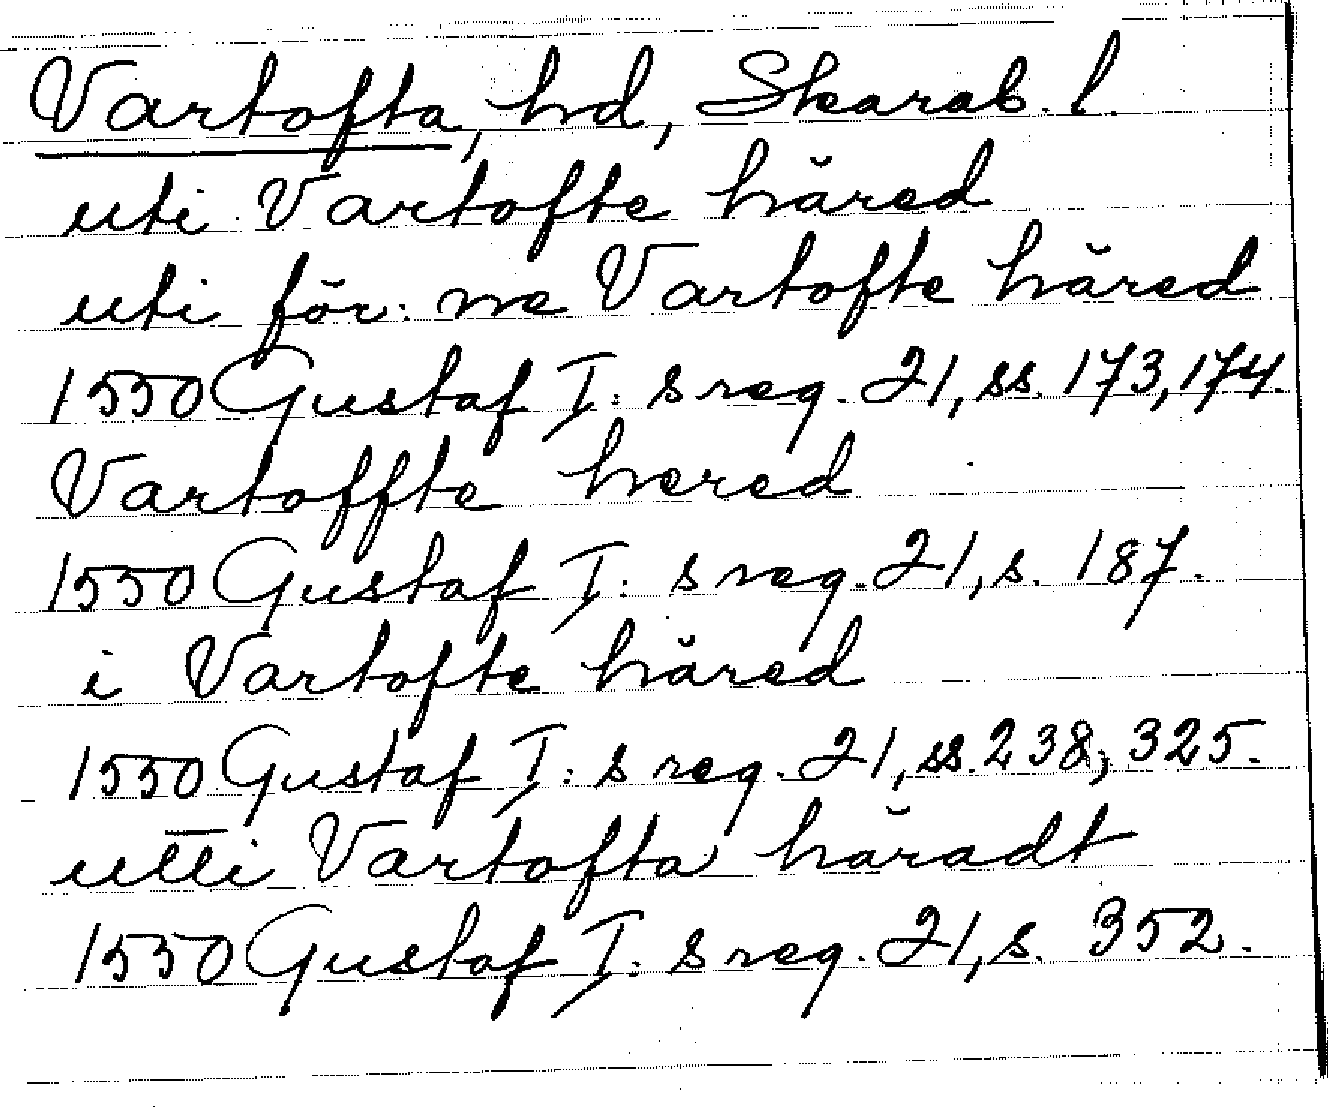 Vartofta, hd, Skarab. l.
uti Vartofte häred
uti för: ne Vartofte häred
1550 Gustaf I: s reg. 21, ss. 173, 174.
Vartoffte hered
1550 Gustaf I: s reg. 21, s. 187.
i Vartofte häred
1550 Gustaf I: s reg. 21, ss. 238, 325.
utti Vartofta häradt
1550 Gustaf I: s reg. 21, s. 352.